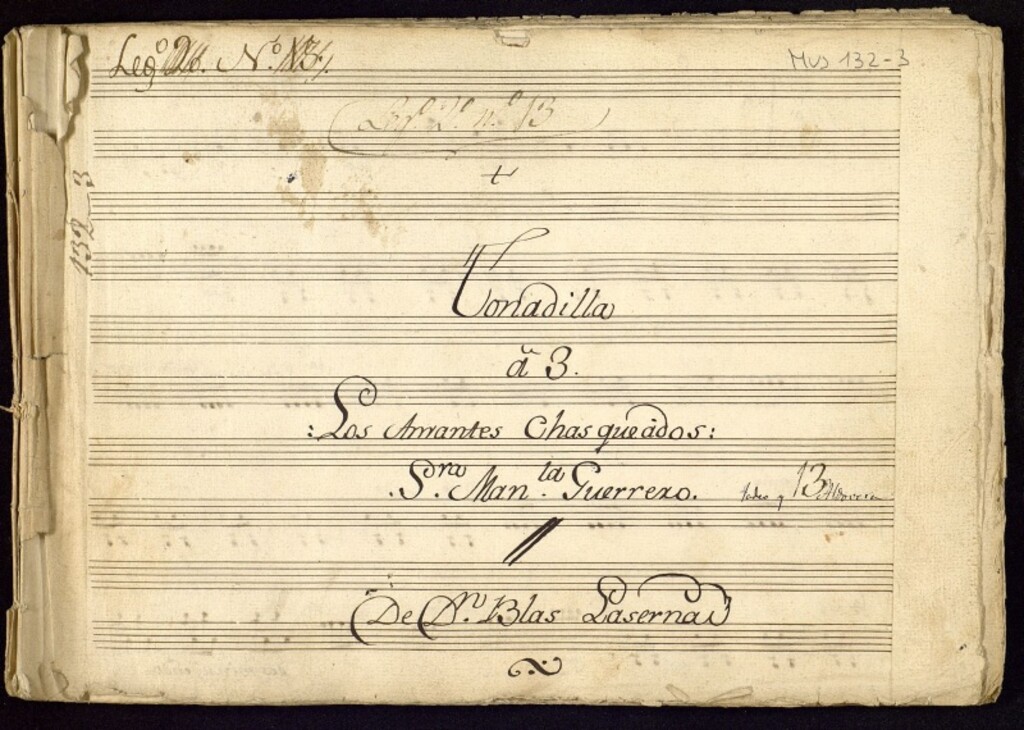 Leg.º 2. N.º 13.
Mus 132-3
Leg.º 2.º n.º 13
132-3
Tonadilla
â 3.
:Los Amantes Chasqueádos:
.S.ra Man.la Guerrero.
13
De D.n Blas Laserna